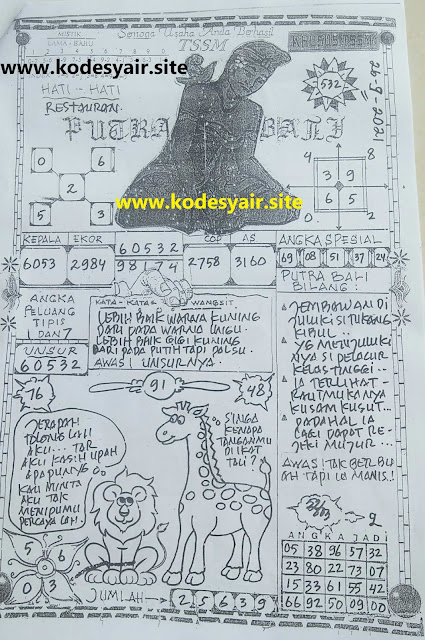 Semoga Usaha Anda Berhasil
MISTIK
LAMA - BARU
TSSM
1 2 3 4 5 6 7 8 9 0
www.kodesyair.site
HATI - HATI
RESTAURAN.
532
26-9-2021
PUTRA BALI
0 6
2
5 3
4 8
3 9
6 5
0 2
www.kodesyair.site
KEPALA EKOR
6053 2984
60532
98174
COP AS
2758 3160
ANGKA SPESIAL
69 08 51 37 24
ANGKA
PELUANG
TIPIS
1 DAN 7
UNSUR
60532
KATA - KATA WANGSIT
LEBIH BAIK WARNA KUNING
DARI PADA WARNA UNGU.
LEBIH BAIK GIGI KUNING
DARI PADA PUTIH TAPI PALSU.
AWAS! UNSURNYA.
PUTRA BALI
BILANG:
JEMBAWAN DI
JULUKI SI TUKANG
KIBUL..
YG MENJULUKI
NYA SI DELACUR
KELAS TINGGI..
IA TERLIHAT
RAUT MUKANYA
KUSAM KUSUT...
PADAHAL IA
LAGI DAPAT RE-
JEKI MUJUR...
AWAS! TAK BERLBU
AH TAPI IA MANIS.!
76
91
48
JERAPAH
TOLONG LAH
AKU... TAR
AKU KASIH UPAH
APA PUNYO
KAU MINTA
AKU TAK
MENIPUMU
PERCAYA LAH.
SINGA
KENAPA
TANGANMU
DI IKAT
TALI?
5 6
0 3
JUMLAH
2 5 6 3 9
ANGKA JADI
05 38 96 57 32
23 80 22 73 07
15 33 61 55 42
66 92 50 09 00